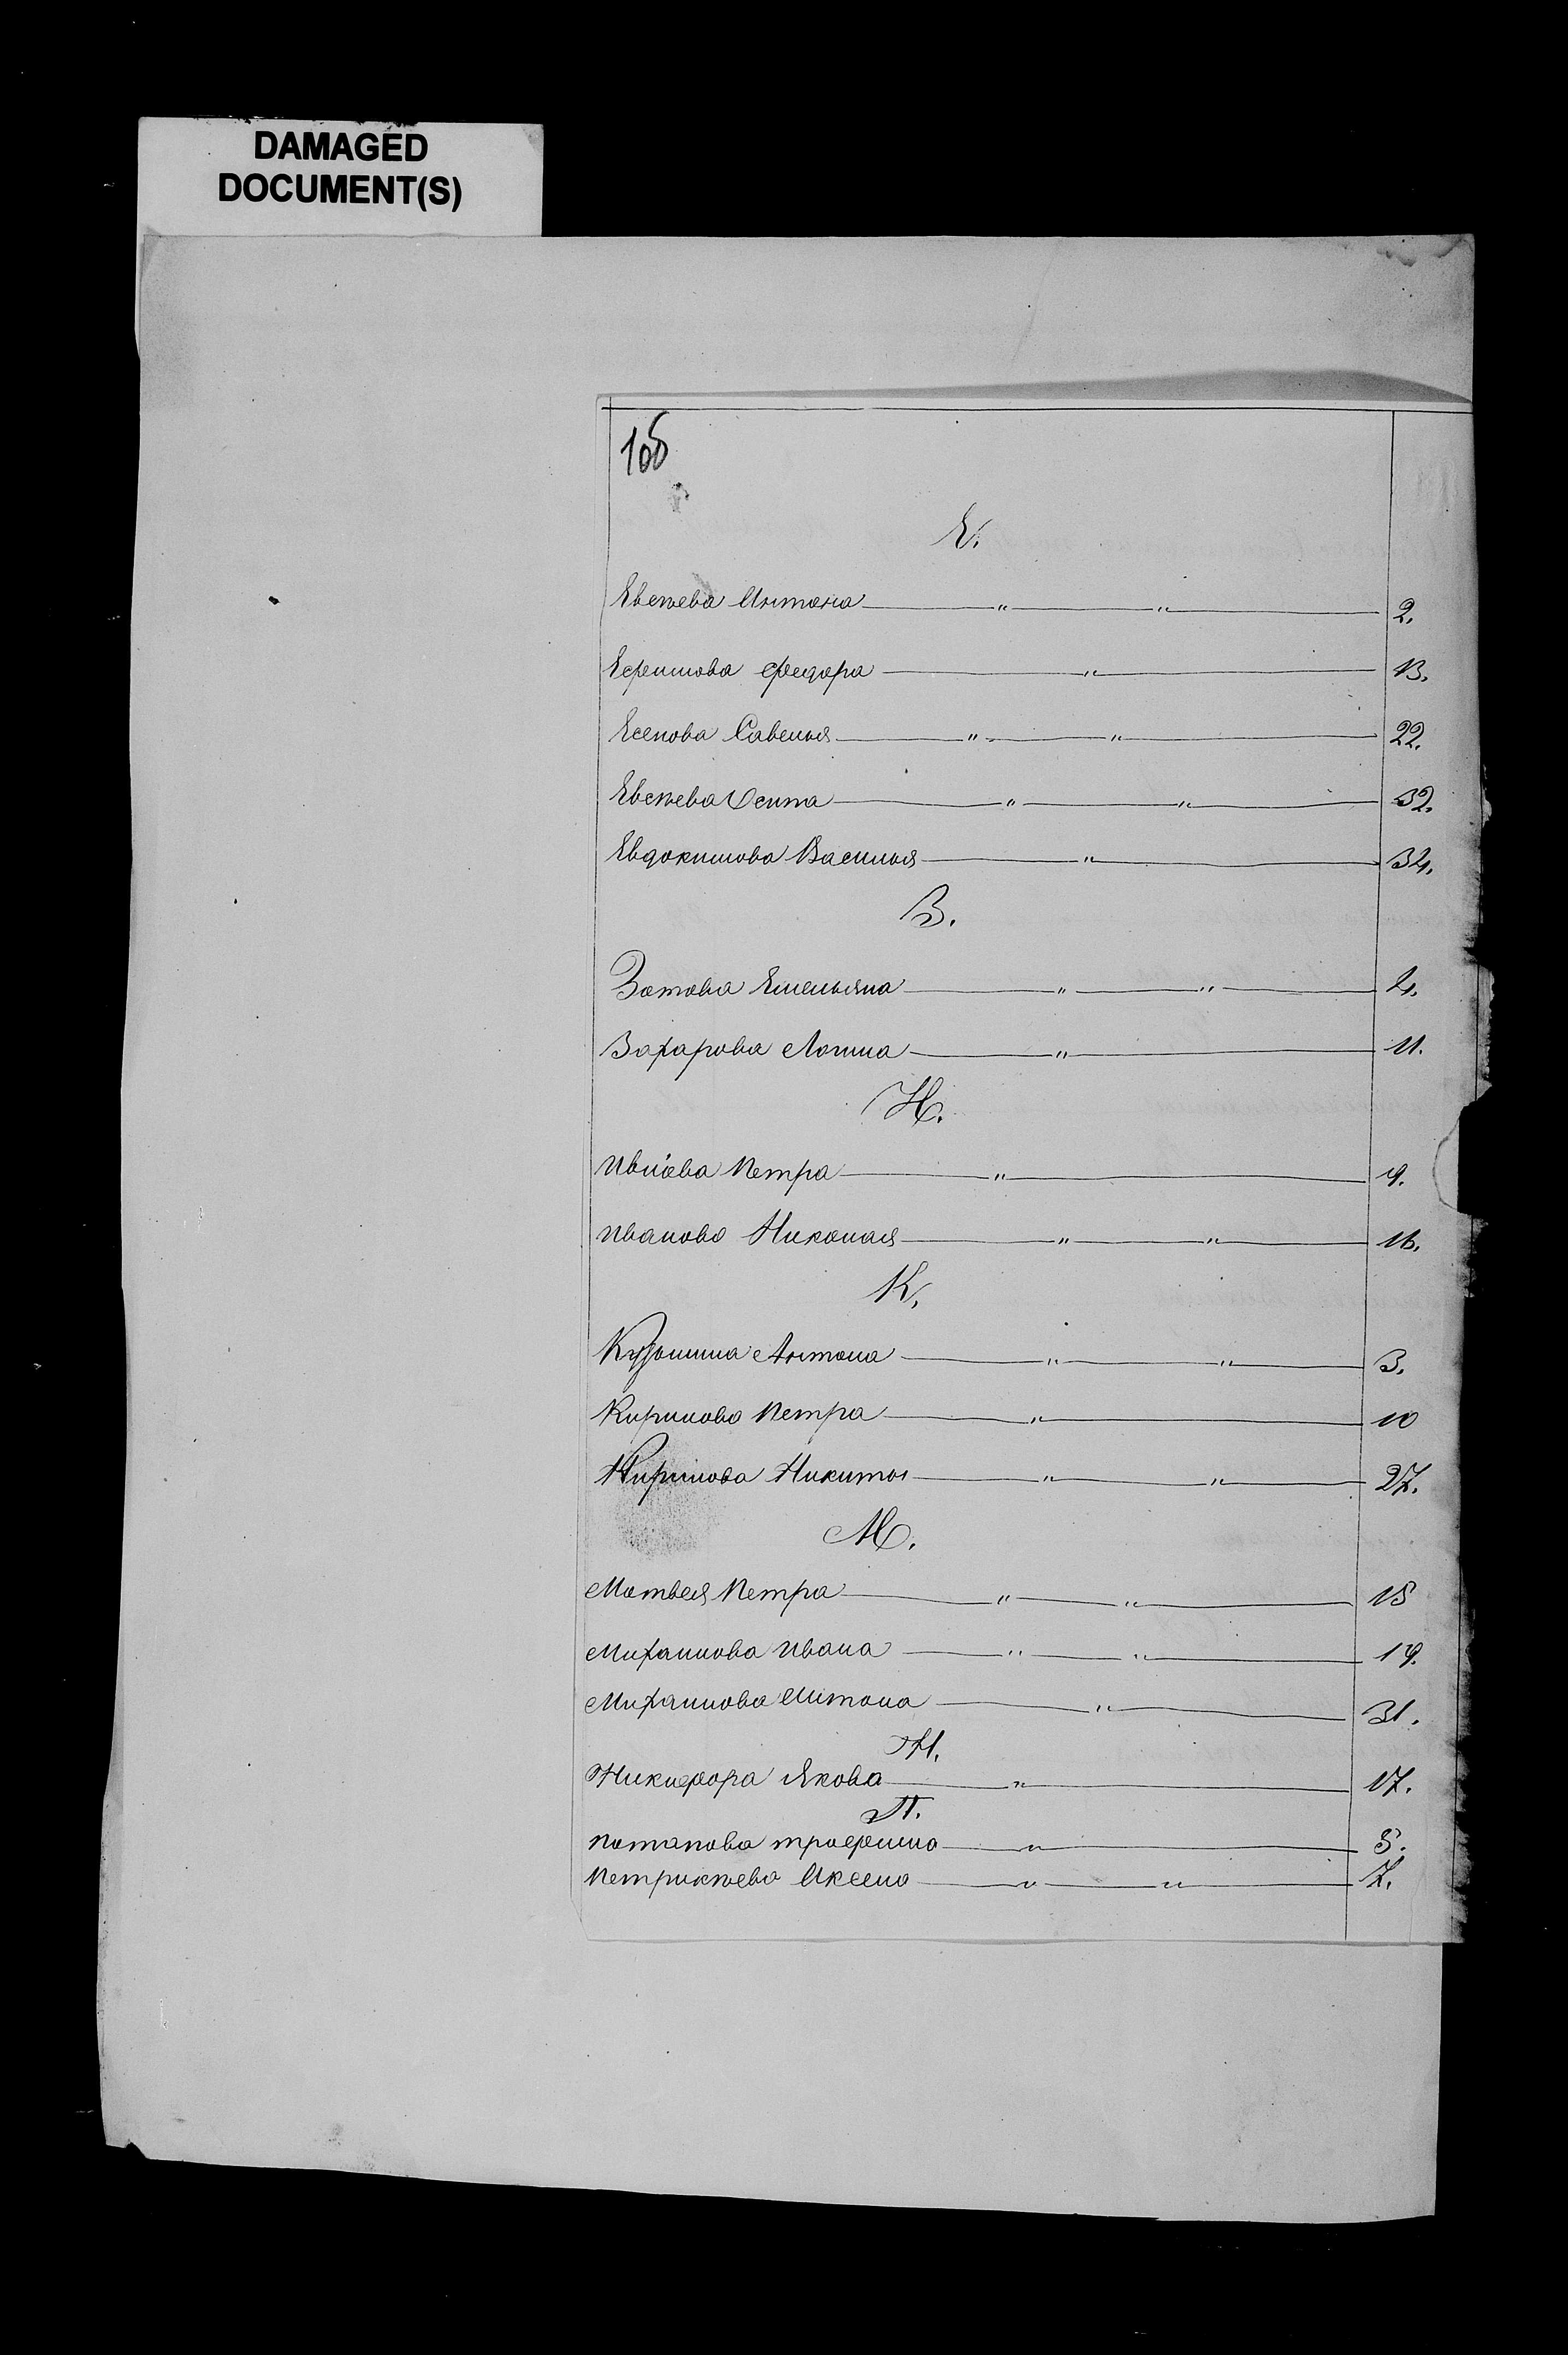 DAMAGED
DOCUMENT(S)
106
Е.
Евсѣева Антона — " — " — 2.
Ефимова Федора — " — 13.
Есепова Савелья — " — " — 22.
Евсѣева Осипа — " — " — 32.
Евдокимова Василья — " — 34.
З.
Зотова Емельяна — " — " — 4.
Захарова — " — 11.
И.
Петра — " — 9.
Иванова Николая — " — " — 16.
К.
Кузьмина Антона — " — " — 3.
Кирилова Петра — " — 10
Кирилова Никиты — " — " — 27.
М.
Матвея Петра — " — " — 15
Михаилова Ивана — " — " — 19.
Михаилова Антона — " — 31.
Н.
Никифора Якова — " — 17.
П.
Потапова Трофима — " — 5.
Петрикѣева — " — " — 7.